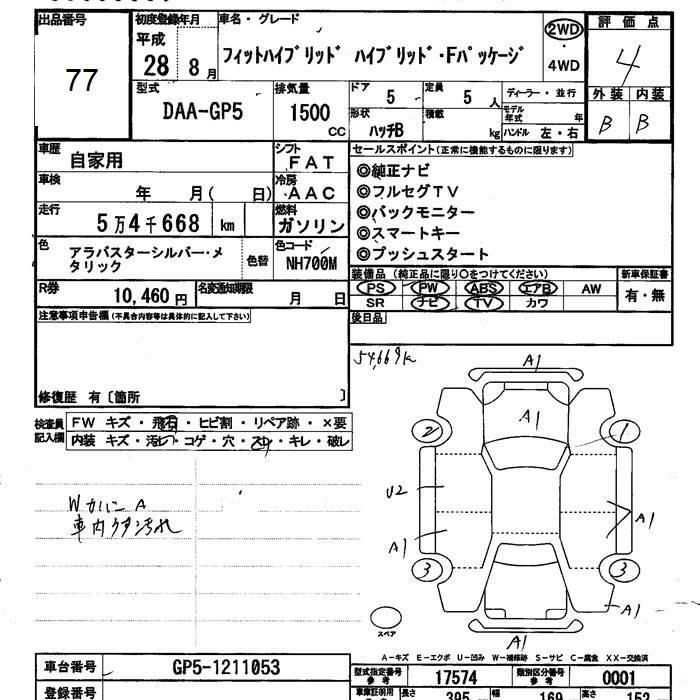 出品番号
77
初度登録年月
平成
28 8月
車名・グレード
フィットハイブリッド ハイブリッド・Fパッケージ
2WD
・
4WD
評価点
4
外装 内装
B B
型式
DAA-GP5
排気量
1500
CC
ドア
5
定員
5 人
形状
ハッチB
積載
kg
ディーラー・並行
モデル年式 年
ハンドル 左・右
車歴
自家用
シフト
FAT
車検
年 月( 日)
冷房
AAC
走行
5万4千668 km
燃料
ガソリン
色
アラバスターシルバー・メタリック
色替
色コード
NH700M
R券
10,460円
名変通知期限
月 日
セールスポイント(正常に機能するものに限ります)
◎純正ナビ
◎フルセグTV
◎バックモニター
◎スマートキー
◎プッシュスタート
装備品(純正品に限り○をつけてください)
PS PW ABS エアB AW
SR ナビ TV カワ
新車保証書
有・無
後日品
注意事項申告欄(不具合内容等は具体的に記入して下さい)
修復歴 有〔箇所 〕
検査員記入欄
FW キズ・飛石・ヒビ割・リペア跡・×要
内装 キズ・汚レ・コゲ・穴・スレ・キレ・破レ
54,669k
Wカバー A
車内ウチ汚れ
A1
A1
2
1
U2
A1
A1
3
3
A1
A1
スペア
A-キズ E-エクボ U-凹み W-補修跡 S-サビ C-腐食 XX-交換済
車台番号
GP5-1211053
型式指定番号
参考
17574
類別区分番号
参考
0001
登録番号
車庫証明用
長さ
395
幅
169
高さ
152